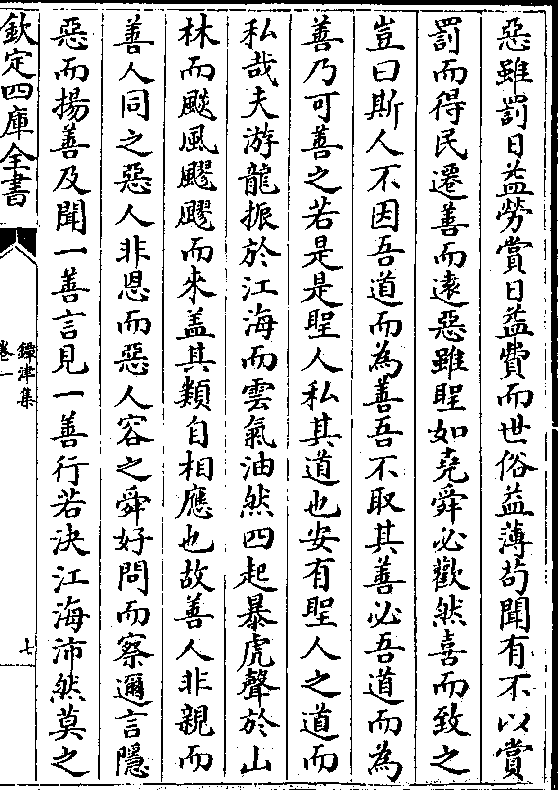 惡雖罰日益勞賞日益費而世俗益薄苟聞有不以賞
罰而得民遷善而逺惡雖聖如堯舜必歡然喜而致之
豈曰斯人不因吾道而為善吾不取其善必吾道而為
善乃可善之若是是聖人私其道也安有聖人之道而
私哉夫游龍振於江海而雲氣油然四起暴虎聲於山
林而飈風飂飂而來盖其類自相應也故善人非親而
善人同之惡人非恩而惡人容之舜好問而察邇言隱
惡而揚善及聞一善言見一善行若決江海沛然莫之
欽定四庫全書
鐔津集
卷一
七